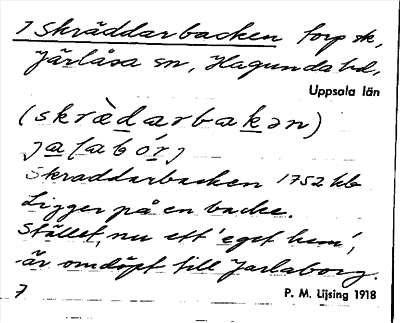 7 Skräddarbacken torp sk,
Järlåsa sn, Hagunda hd,
Uppsala län
(skrädarbakən)
jalabórj
Skraddarbacken 1752 kb
Ligger på en backe.
Stället, nu ett 'eget hem',
är omdöpt till Jarlaborg.
7
P. M. Lijsing 1918